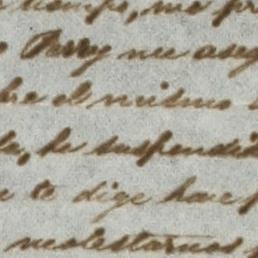 tiempo, me pr
Perry me aseg
el mismo
he suspendid
te dige hace
molestarnos